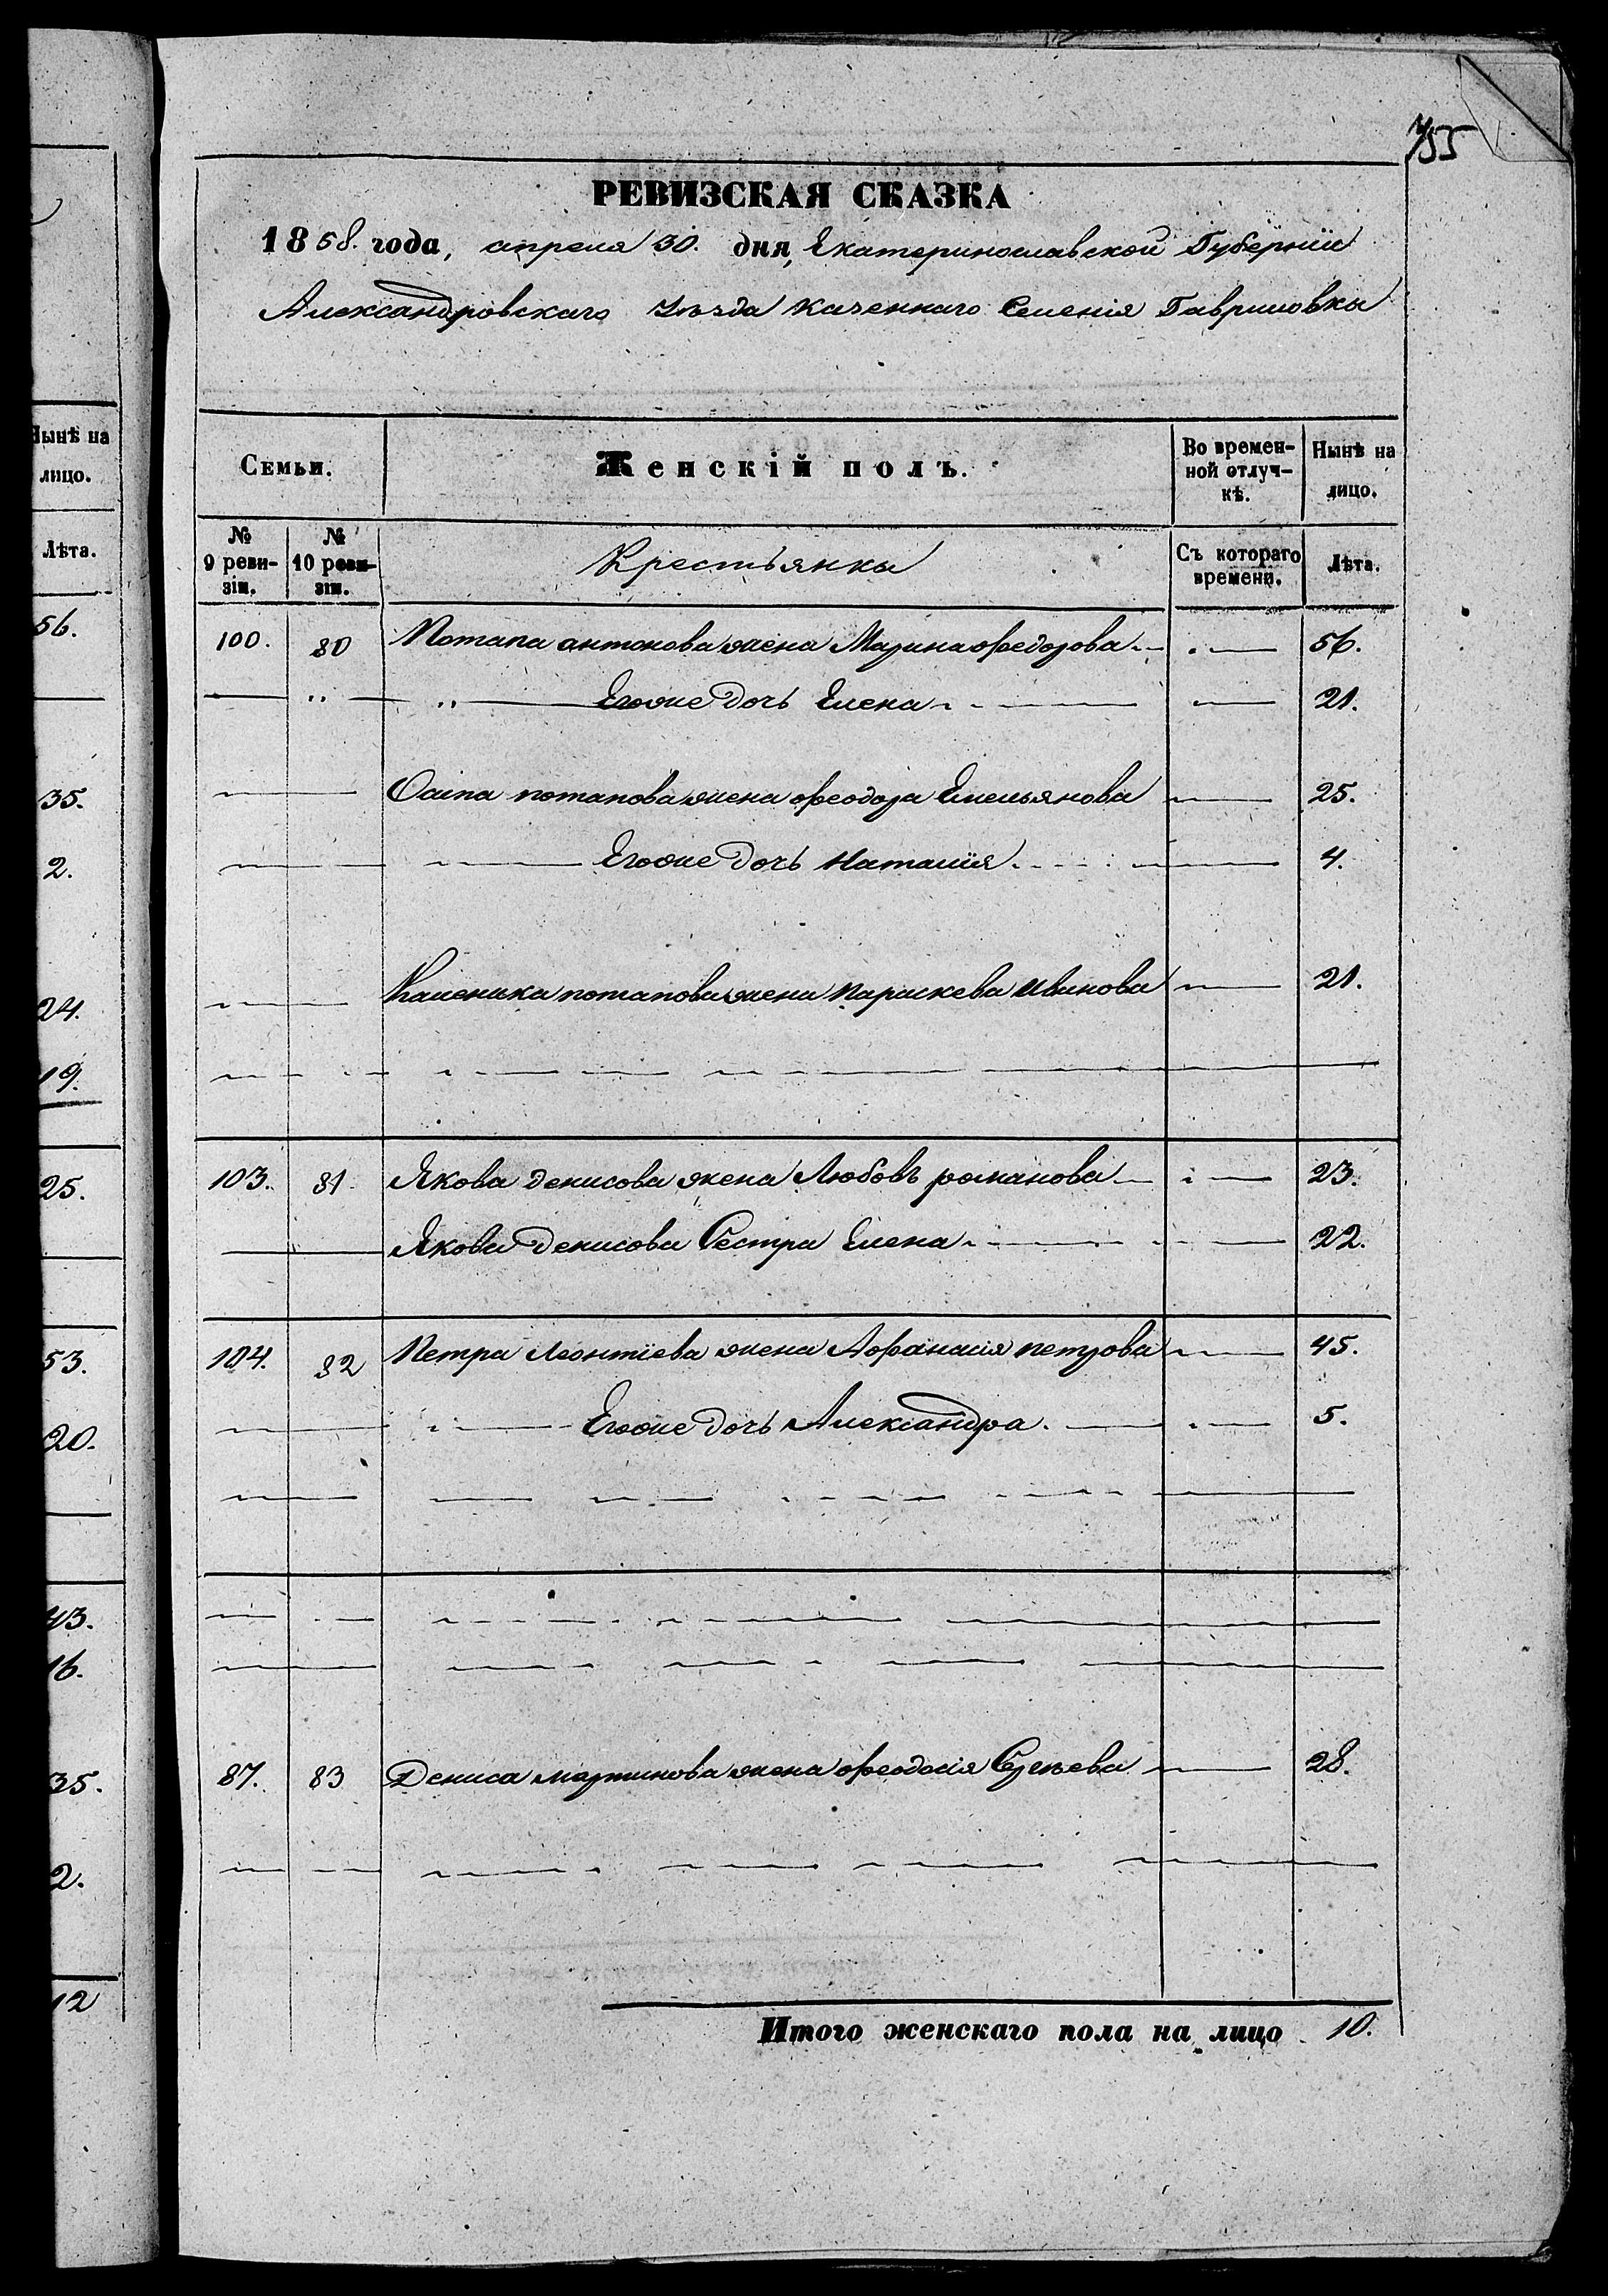 755
РЕВИЗСКАЯ СКАЗКА
1858. года, апреля 30. дня, Екатеринославской Губернїи
Александровскаго Уѣзда Казеннаго Селенія Гавриловки
Ынѣ на
лицо.
Лѣта.
56.
35.
2.
24.
19.
25.
53.
20.
43.
16.
35.
2.
12
Семьи. Женскій полъ. Во времен-ной отлуч-кѣ. Нынѣ на лицо.
№ 9 реви-зіи. № 10 реви-зіи. Крестьянки Съ котораго времени. Лѣта.
100. 80 Потапа антонова жена Марина федорова 56.
" " Егоже дочь Елена 21.
Осипа потапова жена феодора Емельянова 25.
Егоже дочь Наталїя 4.
потапова жена параскева Иванова 21.
103. 81 Якова денисова жена Любовь романова 23.
Якова денисова Сестра Елена 22.
104. 82 Петра Леонтїева жена Афанасія петрова 45.
Егоже дочь Александра. 5.
87. 83 Дениса мартинова жена феодосія 28.
Итого женскаго пола на лицо 10.